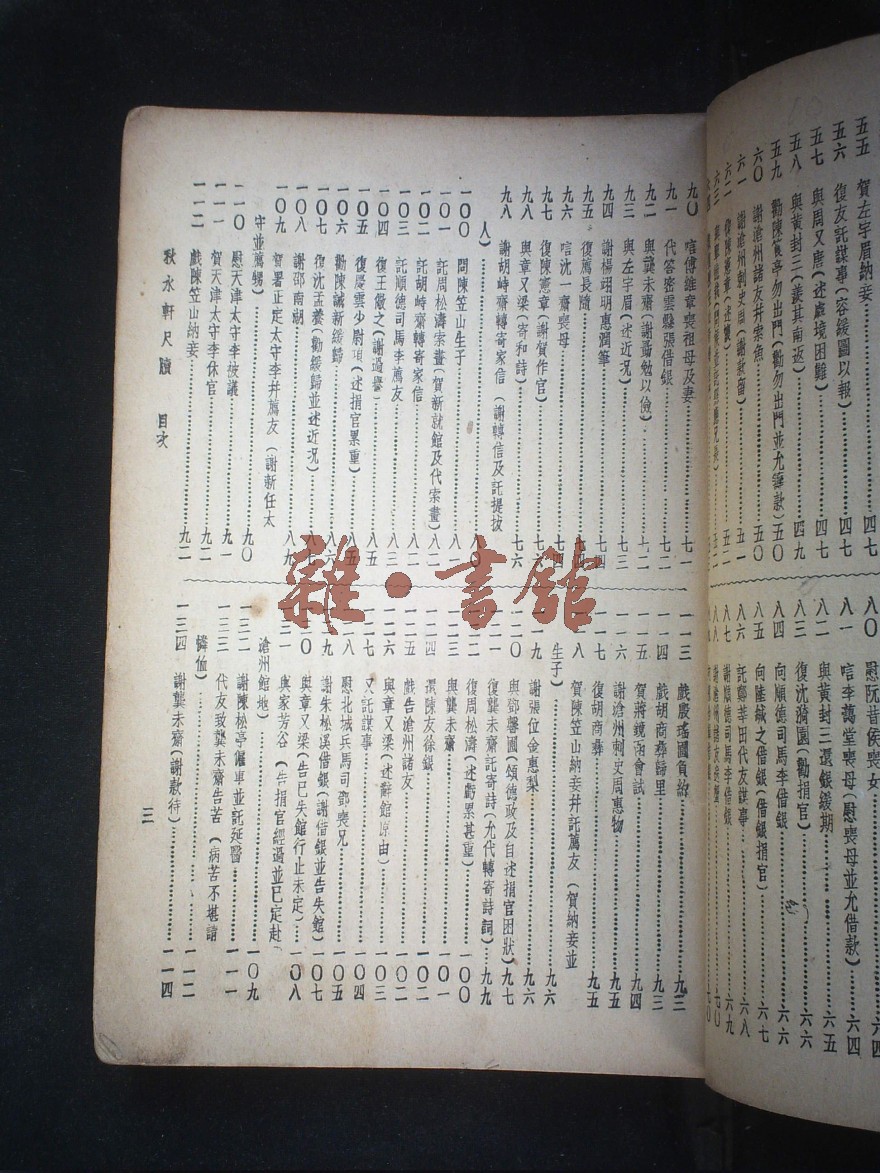 五五 賀左宇眉納妾……四七
五六 復友託謀事(容緩圖以報)……四七
五七 與周又唐(述處境困難)……四七
五八 與黃封三(羨其南返)……四九
五九 勸陳笠亭勿出門(勸勿出門並允籌款)五〇
六〇 謝滄州諸友幷索魚……五〇
六一 謝滄州刺史周(謝款留)……五一
八〇 慰阮昔侯喪女……六四
八一 唁李藹堂喪母(慰喪母並允借款)……六四
八二 與黃封三還銀緩期……六五
八三 復沈漪園(勸捐官)……六六
八四 向順德司馬李借銀……六六
八五 向陸鍼之借銀(借銀捐官)……六七
八六 託鄭莘田代友謀事……六八
八七 謝順德司馬李借銀……六九
九〇 唁傅維章喪祖母及妻……七一
九一 代答密雲縣張借銀……七二
九二 與龔未齋(謝勗勉以儉)……七二
九三 與左宇眉(述近況)……七三
九四 謝楊翊明惠潤筆……七四
九五 復薦長隨……七四
九六 唁沈一齋喪母……七四
九七 復陳憲章(謝賀作官)……七六
九八 與章又梁(寄和詩)……七六
九九 謝胡峙齋轉寄家信(謝轉信及託提拔
人)……八〇
一〇〇 問陳笠山生子……八一
一〇一 託周松濤索畫(賀新就館及代索畫)八一
一〇二 託胡峙齋轉寄家信……八二
一〇三 託順德司馬李薦友……八三
一〇四 復王儆之(謝過譽)……八五
一〇五 復慶雲少尉項(述捐官累重)……八五
一〇六 勸陳誠新緩歸……八六
一〇七 復沈孟養(勸緩歸並述近況)……八七
一〇八 謝邵南湖……八九
一〇九 賀署正定太守李幷薦友(謝新任太
守並薦甥)……九〇
一一〇 慰天津太守李被議……九一
一一一 賀天津太守李休官……九二
一一二 戲陳笠山納妾……九二
秋水軒尺牘 目次
一一三 戲殷瑤圃負約……九三
一一四 戲胡商彝歸里……九三
一一五 賀蔣鏡涵會試……九四
一一六 謝滄州刺史周惠物……九四
一一七 復胡商彝……九五
一一八 賀陳笠山納妾幷託薦友(賀納妾並
生子)……九六
一一九 謝張位金惠梨……九六
一二〇 與鄧馨圃(頌德政及自述捐官困狀)九七
一二一 復龔未齋託寄詩(允代轉寄詩詞)九九
一二二 復周松濤(述虧累甚重)……一〇〇
一二三 與龔未齋……一〇一
一二四 還陳友徐銀……一〇二
一二五 戲告滄州諸友……一〇二
一二六 與章又梁(述辭館原由)……一〇三
一二七 又託謀事……一〇三
一二八 慰北城兵馬司鄧喪兄……一〇五
一二九 謝朱松溪借銀(謝借銀並告失館)一〇七
一三〇 與章又梁(告已失館行止未定)一〇八
一三一 與家芳谷(告捐官經過並已定赴
滄州館地)……一〇九
一三二 謝陳松亭僱車並託延醫……一一一
一三三 代友致龔未齋告苦(病苦不堪請
憐恤)……一一二
一三四 謝龔未齋(謝款待)……一一四
三
雜·書館